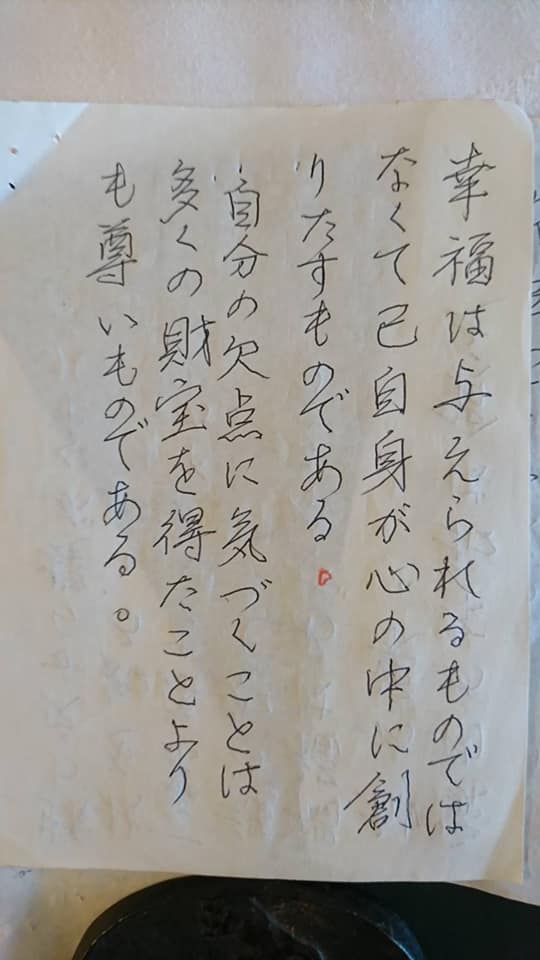 幸福は与えられるものでは
なくて己自身が心の中に創
りたすものである。
自分の欠点に気づくことは
多くの財宝を得たことより
も尊いものである。